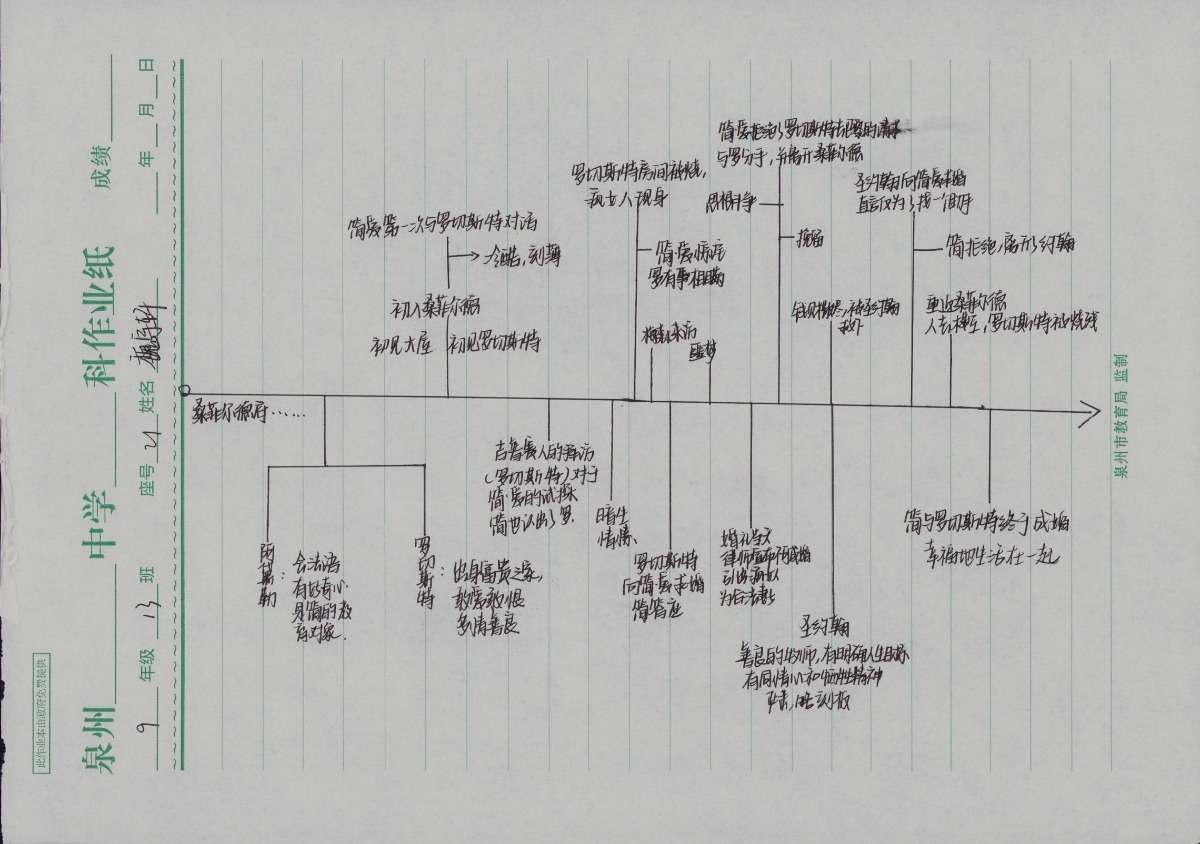 此作业本由政府免费提供
泉州 中学 科作业纸 成绩
9 年级 13 班 座号 21 姓名 年 月 日
简爱拒绝了罗切斯特
与罗分手，并离开桑菲尔德
罗切斯特房间被烧，
疯女人现身
思想斗争
挽留
圣约翰向简爱求婚
直言仅为了找一个助手
简拒绝，离开约翰
简爱第一次与罗切斯特对话
冷酷，刻薄
简爱惊诧
罗有事相瞒
初入桑菲尔德
初见大屋
初见罗切斯特
梅森来访
噩梦
被圣约翰
救下
重返桑菲尔德
人去楼空，罗切斯特被烧残
桑菲尔德府……
吉普赛人的拜访
（罗切斯特）对于
简爱的试探
简也认出了罗.
暗生
情愫
阿黛勒：
会法语
有好奇心
是简的教
育对象.
罗切斯特：
出身富贵之家，
敢爱敢恨
多情善良
罗切斯特
向简爱求婚
简答应
婚礼当天
律师宣布不可成婚
引出疯女人
为合法妻子
圣约翰
善良的牧师，有明确人生目标
有同情心和牺牲精神
严肃，略刻板
简与罗切斯特终于成婚
幸福地生活在一起
泉州市教育局 监制